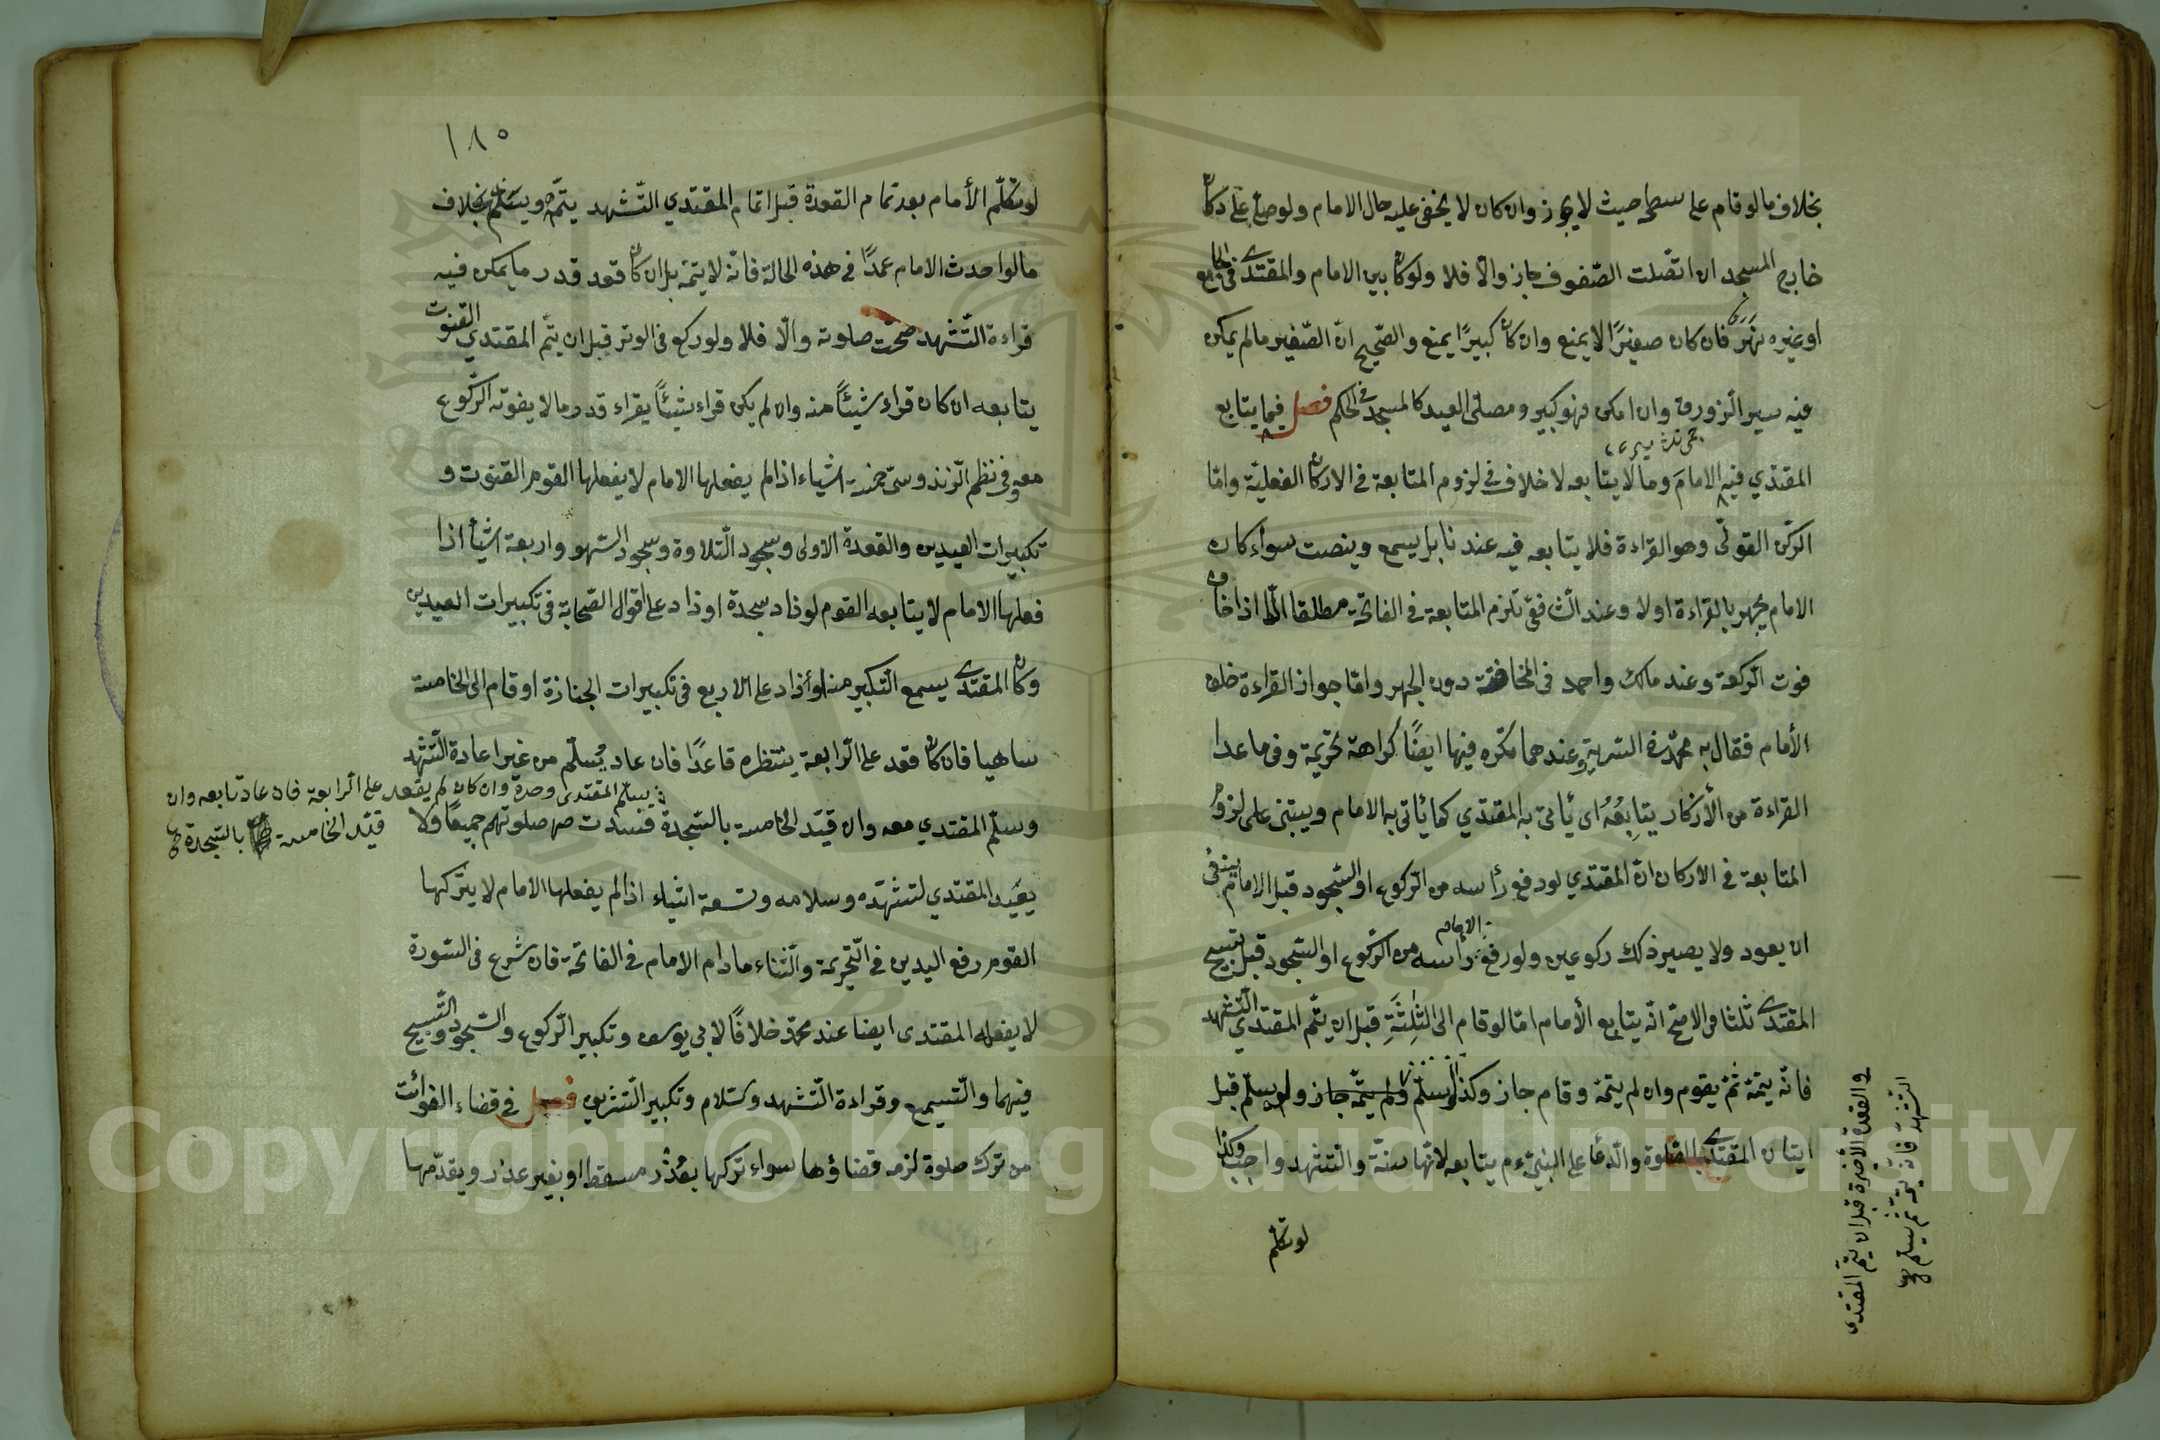 بخلاف ما لو قام على سطحه حيث لا يجوز وان كان لا يخفى عليه حال الامام ولو صلى على دكان
خارج المسجد ان اتصلت الصّفوف جاز والّا فلا ولو كان بين الامام والمقتدي في الجامع
او غيره نهر فان كان صغيرًا لا يمنع وان كان كبيرًا يمنع والصّحيح انّ الصّغير ما لم يمكن
فيه سير الزورق وان امكن فهو كبير ومصلّى العيد كالمسجد في الحكم فصل فيما يتابع
المقتدي فيه الامام وما لا يتابعه لا خلاف في لزوم المتابعة في الاركان الفعليّة وامّا
الرّكن القولىّ وهو القراءة فلا يتابعه فيه عندنا بل يسمع وينصت سواء كان
الامام يجهر بالقراءة اولا وعند الشّافعيّ تلزم المتابعة في الفاتحة مطلقا الّا اذا خاف
فوت الرّكعة وعند مالك واحمد في المخافتة دون الجهر وامّا جواز القراءة خلف
الأمام فقال به محمّد في السّرية وعندهما تكره فيها ايضًا كراهة تحريمة وفي ما عدا
القراءة من الأذكار يتابِعُهُ اى يأتى به المقتدي كما يأتى به الامام ويبتنى على لزوم
المتابعة في الاركان انّ المقتدي لو رفع رأسه من الرّكوع او السّجود قبل الامام ينبغى
ان يعود ولا يصير ذلك ركوعين ولو رفع الامام رأسه من الرّكوع او السّجود قبل تسبيح
المقتدي ثلثا في الاصح انّه يتابع الأمام امّا لو قام الى الثّالِثَةِ قبل ان يتّم المقتدي التّشهد
فانّه يتمّه ثمّ يقوم وان لم يتمّه وقام جاز وكذا لو سلّم ولم يتمّه جاز ولو سلّم قبل
ايتان المقتدي بالصّلوة والدّعا على النبيّ م يتابعه لانّها سنّة والتّشهد واجب وكذا
لو تكلّم
في القعدة الأخيرة قبل ان يتّم المقتدى
التّشهد فانّه يتمّه ثمّ يسلم صح
١٨٥
لو تكلّم الأمام بعد تمام القعدة قبل اتمام المقتدي التّشهد يتمّه ويسلّم بخلاف
ما لو احدث الامام عمدًا في هذه الحالة فانّه لا يتمّه بل ان كان قعد قدر ما يمكن فيه
قراءة التّشهد صحّت صلوته والّا فلا ولو ركع في الوتر قبل ان يتّم المقتدي القنوت
يتابعه ان كان قراء شيئًا منه وان لم يكن قراء شيئًا يقراء قدر ما لا يفوته الرّكوع
معه وفي نظم الزندوستّى خمسة اشياء اذا لم يفعلها الامام لا يفعلها القوم القنوت و
تكبيرات العيدين والقعدة الاولى وسجود التّلاوة وسجود السّهو واربعة اشيأ اذا
فعلها الامام لا يتابعه القوم لو زاد سجدة او زاد على اقوال الصّحابة في تكبيرات العيدين
وكان المقتدي يسمع التّكبير منه او أزاد على الاربع في تكبيرات الجنازة او قام الى الخامسة
ساهيا فان كان قعد على الرّابعة ينتظره قاعدًا فان عاد يُسلّم من غير اعادة التّشهد
وسلّم المقتدي معه وان قيّد الخامسة بالسّجدة فسدت صلوتهم جميعًا ولا
يسلّم المقتدى وحده وان كان لم يقعد على الرابعة فان عاد تابعه وان
قيّد الخامسة بالسّجدة صح
يفيد المقتدي لتشهّده وسلامه وتسعة اشياء اذا لم يفعلها الامام لا يتركها
القوم رفع اليدين في التّحريمة والثّناء ما دام الامام في الفاتحة فان شرع في السّورة
لا يفعله المقتدى ايضا عند محمّد خلافًا لابي يوسف وتكبير الرّكوع والسّجود والتّسبيح
فيهما والتّسميع وقراءة التّشهد والسّلام وتكبير التّشريق فصل في قضاء الفوائت
من ترك صلوة لزمه قضاؤها سواء تركها بعُذْر مسقط او بغير عذر ويقدّمها
Copyright © King Saud University